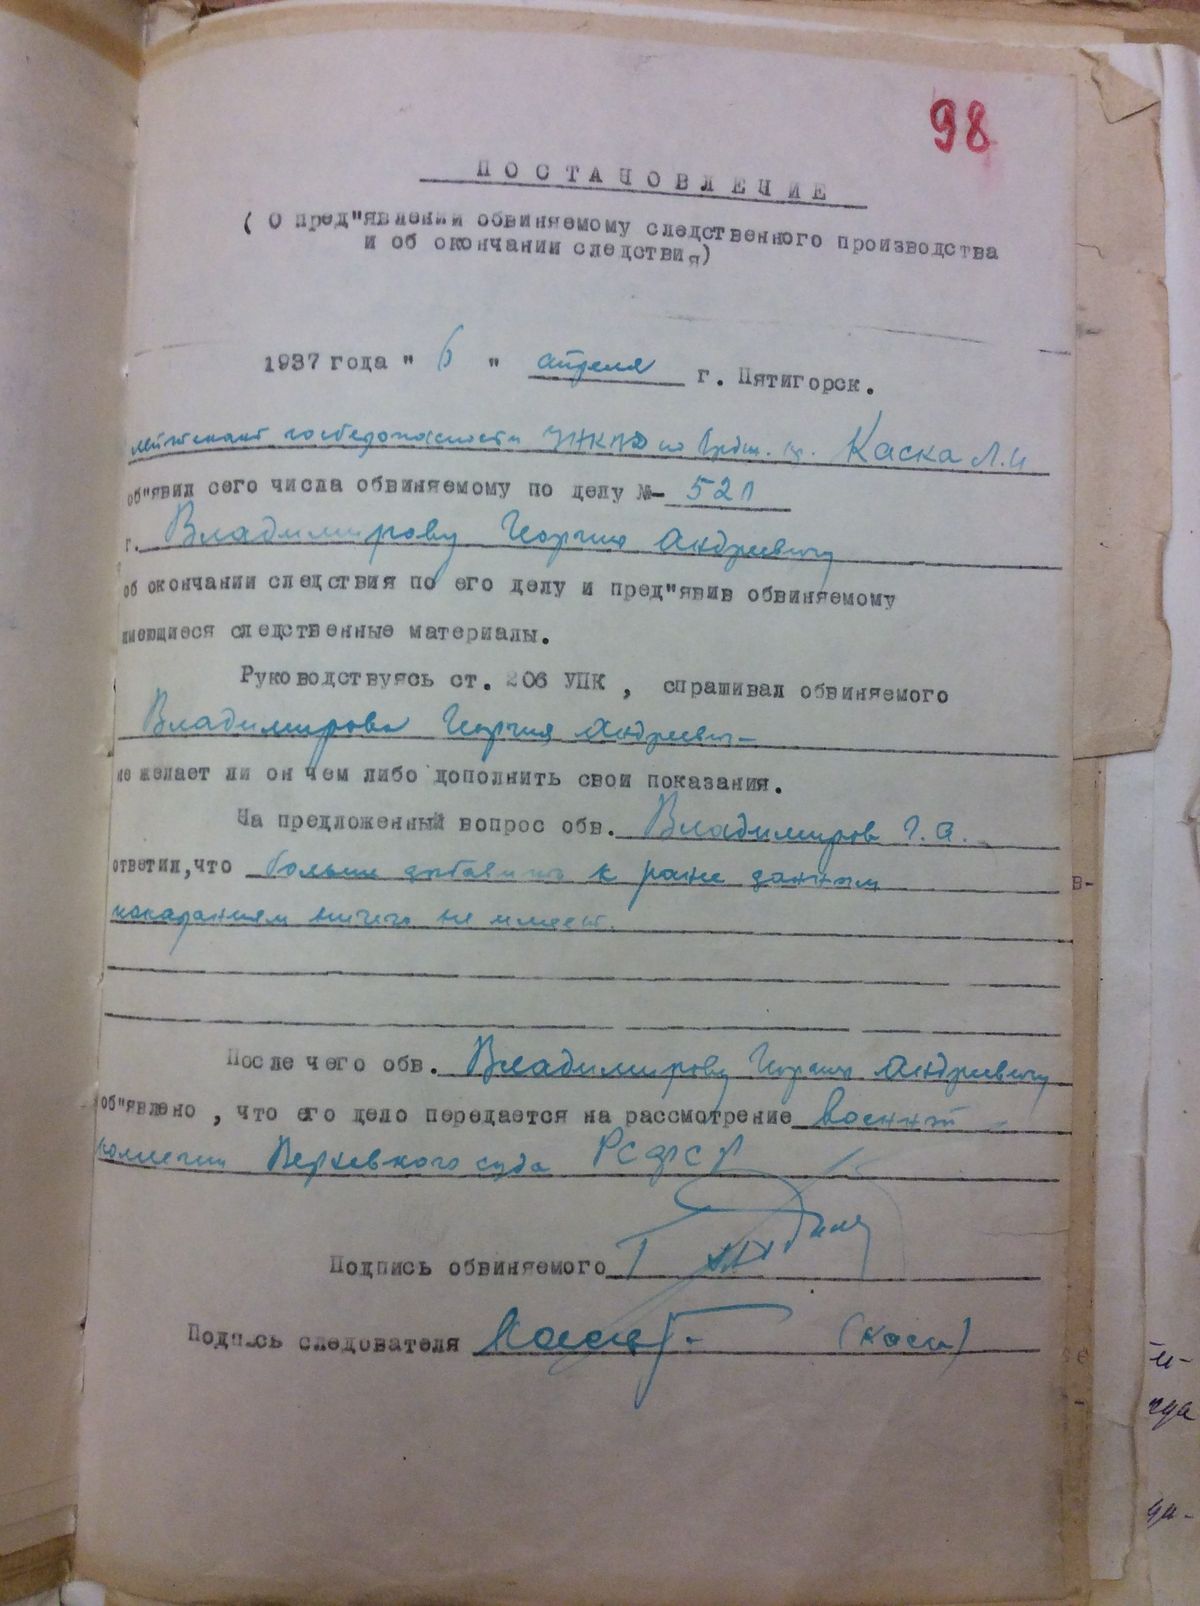 98
ПОСТАНОВЛЕНИЕ
( О пред"явлении обвиняемому следственного производства
и об окончании следствия)
1937 года " 6 " апреля г. Пятигорск.
лейтенант госбезопасности УНКВД по Каска Л.И
об"явил сего числа обвиняемому по делу №- 521
г. Владимирову Георгию Андреевичу
об окончании следствия по его делу и пред"явив обвиняемому
имеющиеся следственные материалы.
Руководствуясь ст. 206 УПК , спрашивал обвиняемого
Владимирова Георгия Андреевич-
не желает ли он чем либо дополнить свои показания.
На предложенный вопрос обв. Владимиров Г.А.
ответил,что больше добавить к ране данным
показаниям ничего не имеет.
После чего обв. Владимирову Георгию Андреевичу
об"явлено , что его дело передается на рассмотрение военной
коллегии Верховного суда РСФСР
Подпись обвиняемого
Подпись следователя